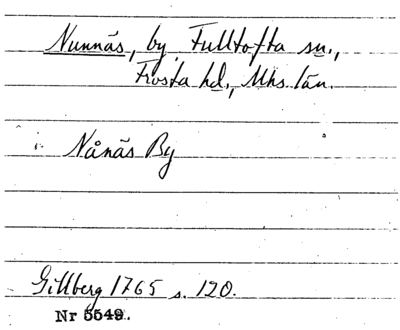 Nunnäs, by, Fulltofta sn.,
Frosta hd., Mhs län.
Nånäs By
Gillberg 1765 s. 120.
Nr 5549.